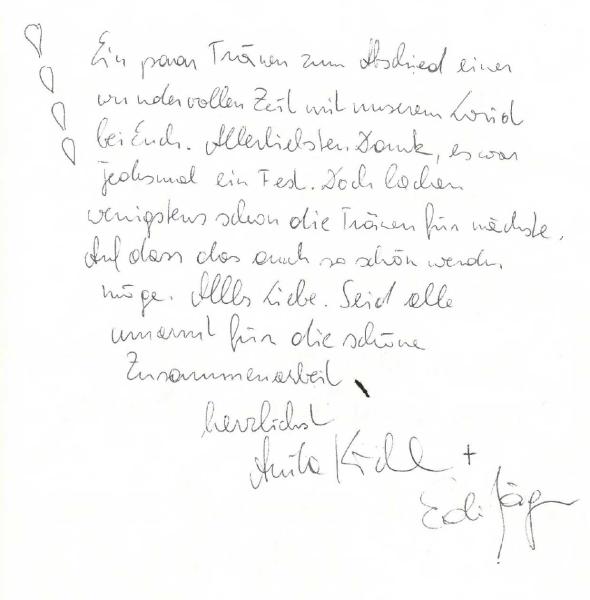 Ein paar Tränen zum Abschied einer
wundervollen Zeit mit unserem
bei Euch. Allerliebsten Dank, es war
jedesmal ein Fest. Doch lachen
wenigstens schon die Tränen für nächste.
Auf dass das auch so schön werden
möge. Alles Liebe. Seid alle
umarmt für die schöne
Zusammenarbeit
herzlichst
Anita +
Edi Jäger